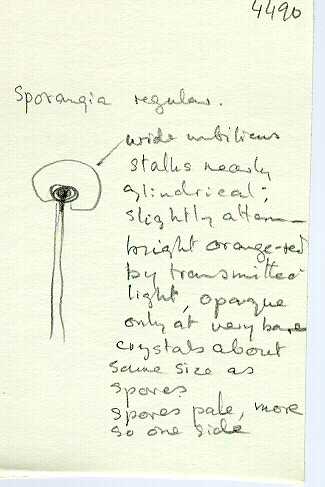 4490
Sporangia regular.
wide umbilicus
stalks nearly
cylindrical;
slightly atten—
bright orange-red
by transmitted
light, opaque
only at very base
crystals about
same size as
spores
spores pale, more
so one side